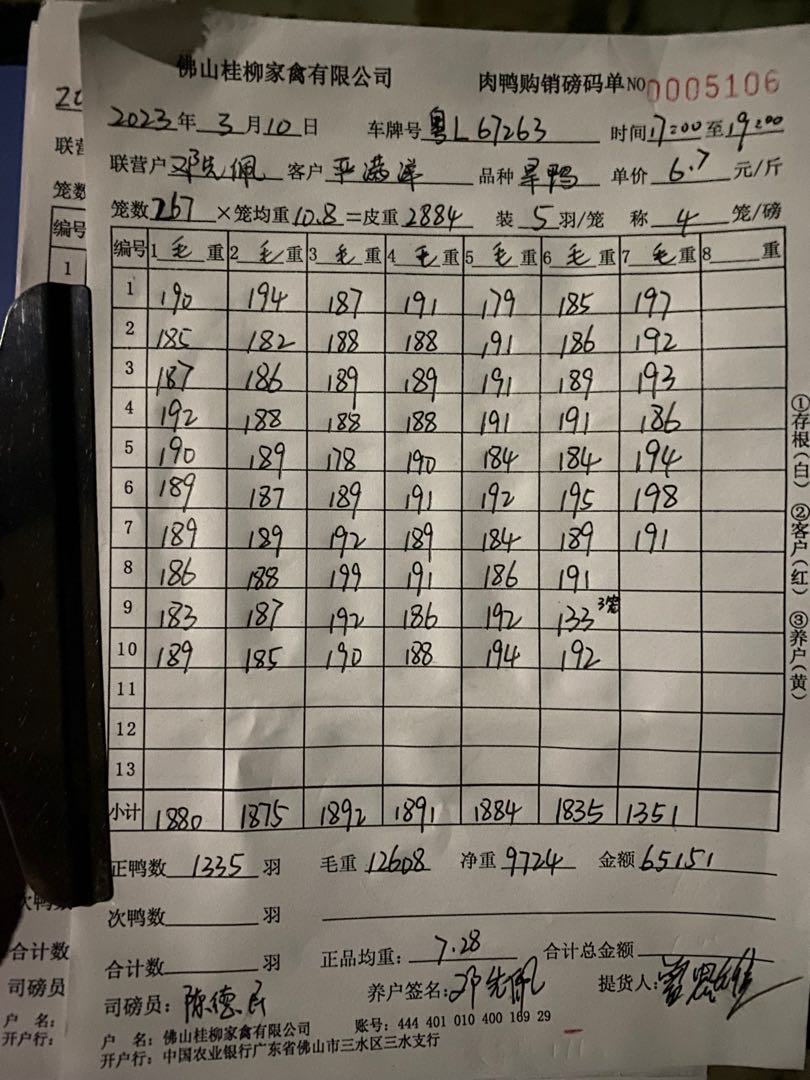 佛山桂柳家禽有限公司 肉鸭购销磅码单 NO 0005106
2023年 3月10日 车牌号 粤L67263 时间17:00至19:00
联营户 邓先佩 客户 品种 旱鸭 单价 6.7 元/斤
笼数 267 ×笼均重 10.8 =皮重 2884 装 5 羽/笼 称 4 笼/磅
编号 1 毛 重 2 毛 重 3 毛 重 4 毛 重 5 毛 重 6 毛 重 7 毛 重 8 重
1 190 194 187 191 179 185 197
2 185 182 188 188 191 186 192
3 187 186 189 189 191 189 193
4 192 188 188 188 191 191 186
5 190 189 178 190 184 184 194
6 189 187 189 191 192 195 198
7 189 189 192 189 184 189 191
8 186 188 199 191 186 191
9 183 187 192 186 192 133 3笼
10 189 185 190 188 194 192
11
12
13
小计 1880 1875 1892 1891 1884 1835 1351
正鸭数 1335 羽 毛重 12608 净重 9724 金额 65151
次鸭数 羽
合计数 羽 正品均重: 7.28 合计总金额
司磅员: 陈德民 养户签名: 邓先佩 提货人:
户 名: 佛山桂柳家禽有限公司 账号: 444 401 010 400 169 29
开户行: 中国农业银行广东省佛山市三水区三水支行
①存根(白) ②客户(红) ③养户(黄)
20
联营
笼数
编号
1
次鸭数
合计数
司磅员
户 名:
开户行: